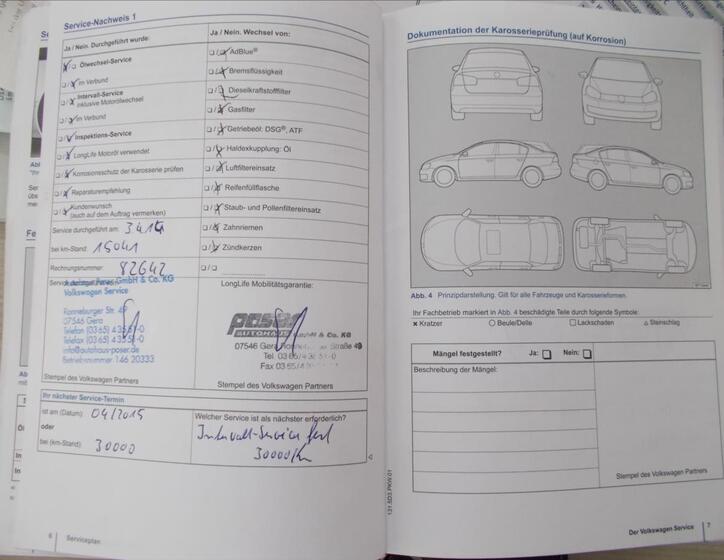 Service-Nachweis 1
Ja / Nein. Durchgeführt wurde:
Ölwechsel-Service
im Verbund
Intervall-Service
inklusive Motorölwechsel
im Verbund
Inspektions-Service
LongLife Motoröl verwendet
Korrosionsschutz der Karosserie prüfen
Reparaturempfehlung
Kundenwunsch
(auch auf dem Auftrag vermerken)
Service durchgeführt am:
bei km-Stand: 15041
Rechnungsnummer: 82642
GmbH & Co. KG
Volkswagen Service
Ronneburger Str.
07546 Gera
Telefon (0365)
Telefax (0365)
info@autohaus-poser.de
Betriebsnummer 146 20333
Stempel des Volkswagen Partners
Ja / Nein. Wechsel von:
AdBlue®
Bremsflüssigkeit
Dieselkraftstofffilter
Gasfilter
Getriebeöl: DSG®, ATF
Haldexkupplung: Öl
Luftfiltereinsatz
Reifenfüllflasche
Staub- und Pollenfiltereinsatz
Zahnriemen
Zündkerzen
LongLife Mobilitätsgarantie:
poser
AUTOHAUS GmbH & Co. KG
07546 Gera Straße 49
Tel. 03 65/4
Fax 03 65/4
Stempel des Volkswagen Partners
Ihr nächster Service-Termin
ist am (Datum): 04/2015
oder
bei (km-Stand): 30000
Welcher Service ist als nächster erforderlich?
Intervall-Service
30000 Km
6 Serviceplan
Dokumentation der Karosserieprüfung (auf Korrosion)
Abb. 4 Prinzipdarstellung. Gilt für alle Fahrzeuge und Karosserieformen.
Ihr Fachbetrieb markiert in Abb. 4 beschädigte Teile durch folgende Symbole:
Kratzer Beule/Delle Lackschaden Steinschlag
Mängel festgestellt? Ja: Nein:
Beschreibung der Mängel:
Stempel des Volkswagen Partners
131.5D3.PKW.01
Der Volkswagen Service 7